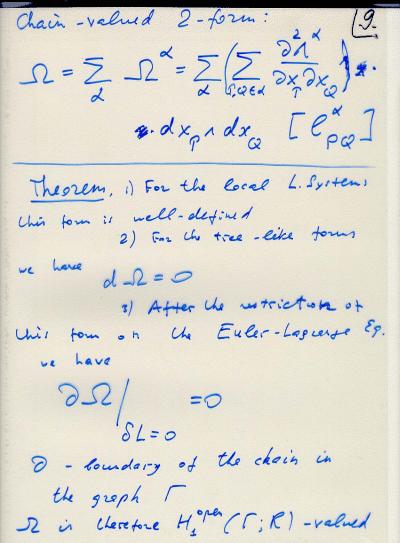 Chain-valued 2-form: 9.
Ω = Σ_α Ω^α = Σ_α ( Σ_{P,Q∈α} ∂²Λ^α / ∂x_P ∂x_Q ) ·
· dx_P ∧ dx_Q [ℓ^α_{PQ}]
Theorem. 1) For the local L. Systems
this form is well-defined
2) For the tree-like forms
we have dΩ = 0
3) After the restriction of
this form on the Euler-Lagrange Eq.
we have
∂Ω |_{δL=0} = 0
∂ - boundary of the chain in
the graph Γ
Ω is therefore H_1^{open}(Γ; R)-valued